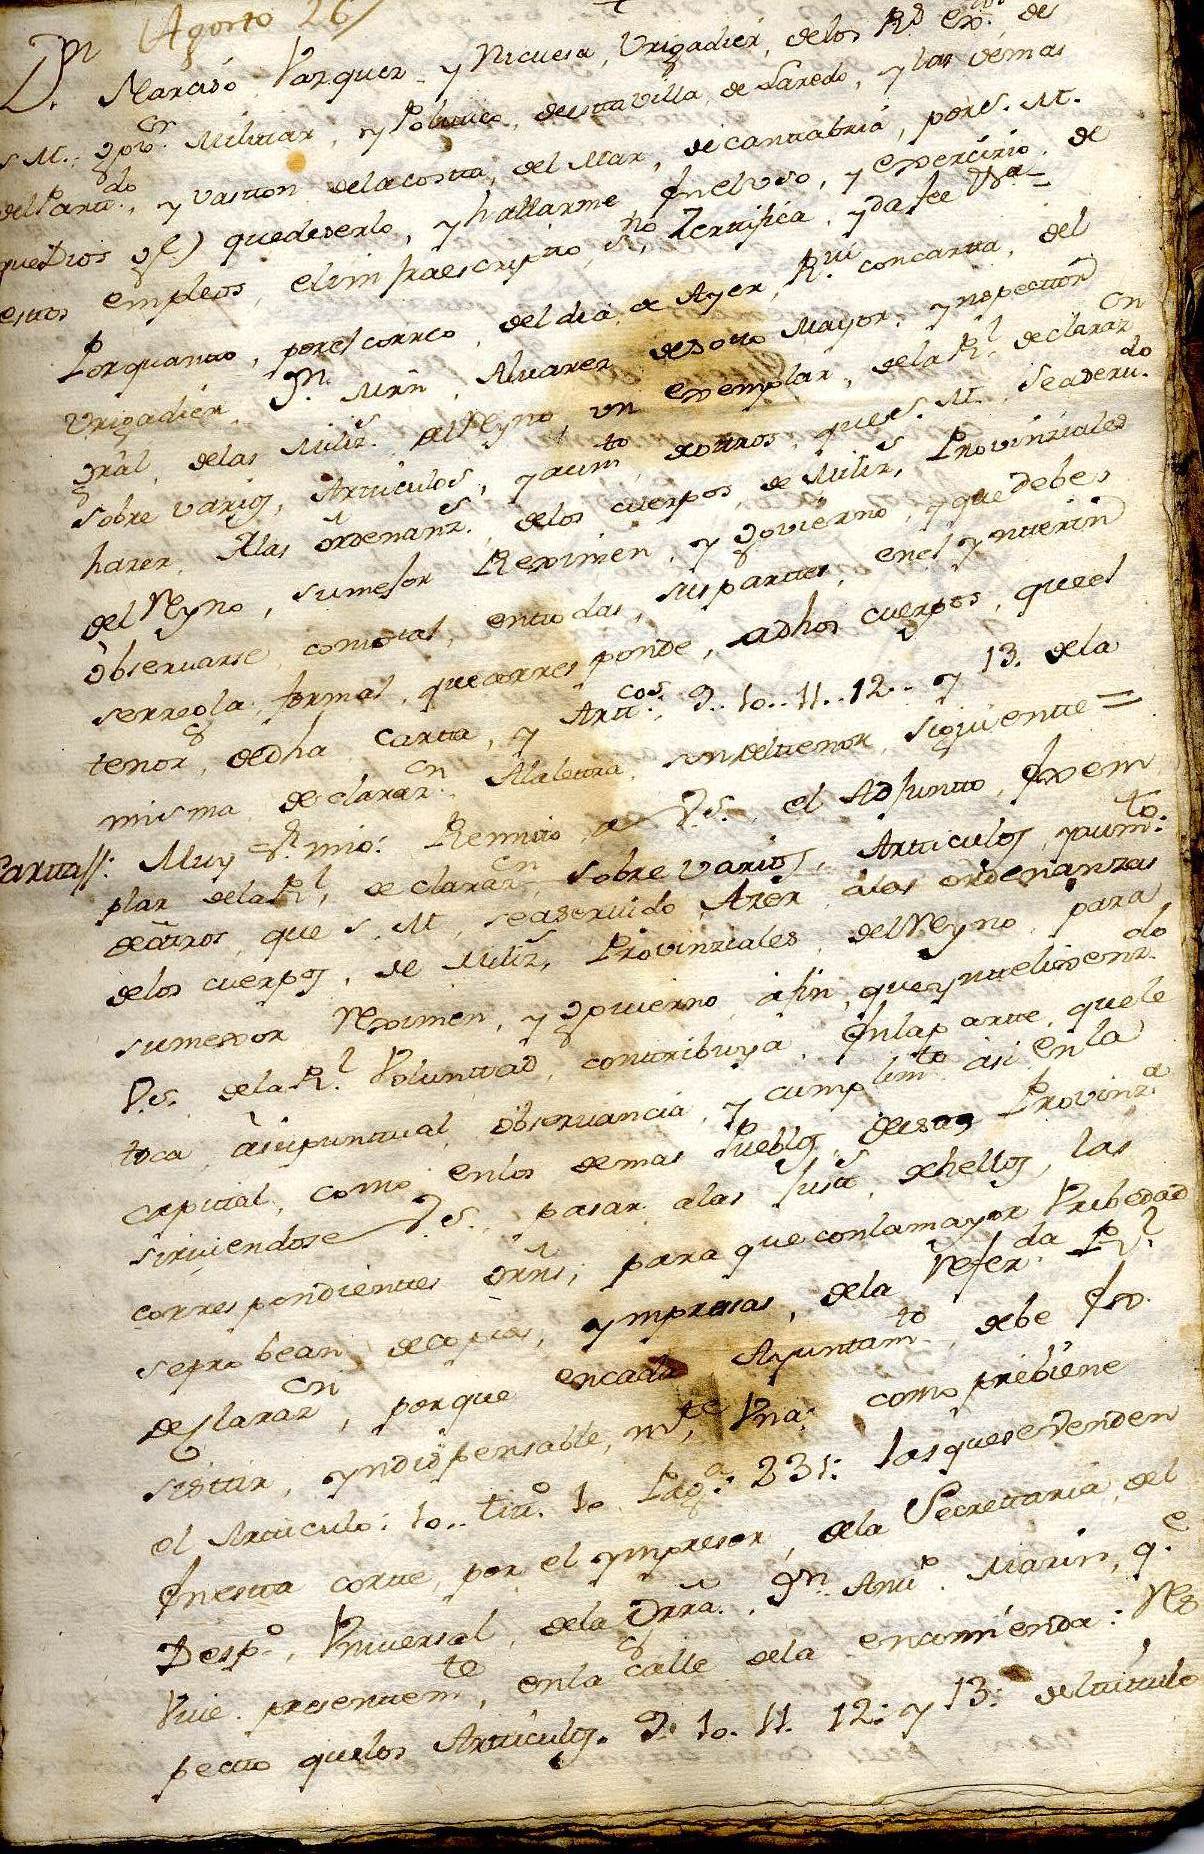 Agosto 26
Dn. Narciso Vazquez y Nicuesa, Vrigadier, delos Rs. Exos. de
S M.; Govor. Militar, y Politico, de esta Villa, de Laredo, y las demas
del Partdo., y vaston dela costa, del Mar, de cantabria, por S. M.
que Dios g(e) quedeserlo, y hallarme Inelvso, y exercicio, de
estos empleos, el infraescripto Sno, Zertifica, y da fee
Porquanto, por el correo, del dia de Ayer, Rvi. concarta, del
Vrigadier, Dn. Mrn Alvarez de Soto Mayor, ynspector
Gral, delas Milizs. del Reyno, un exemplar, dela Rl. declarazcn
sobre varios, Articulos, y aumto de otros, que S. M. seaservdo.
hazer, Alas ordenanzs. delos cuerpos de Milizs, Provinziales
del Reyno, sumejor Reximen, y Govierno, y que debe
observarse, comotal, entodas, sus partes, enel ynterin
serregla, formal, que corresponde, adhos cuerpos, que el
tenor, de dha carta, y Arttcos. 9.. 10.. 11.. 12.. y 13. dela
misma declarazcn. Alaletra, son deltenor, siguiente =
Carta//: Muy Sr. mio: Remito a V.S., el Adjunto, Exem
plar dela Rl, declarazcn sobre varios, Articulos, y aumto:
deotros, que S. M. seaservido Azer, alas ordenanzas
delos cuerpos, de Milizs, Provinziales, del Reyno, para
sumexor Reximen, y Govierno, afin, que yntelixenzdo
V.S. dela Rl. Voluntad, contribuya, Enlaparte, quele
toca, asupuntual, observancia, y cumplimto asi enla
capital, como enlos demas Pueblos, desas Provinza.
sirviendose V.S., pasar, alas Justs, dehellos, las
correspondientes ordns, para que conlamayor Vrebedad
seprobean decopias, ympresas, dela referda Rl
declarazcn, porque encada Ayuntamto, debe Ex.
sistir, yndispensable, mte, Vna: como prebiene
el Articulo: 10.. titto. 10 Paga: 231: lasquesevenden
Enesta corte, por el ympresor, dela Secretaria, del
Despo., Vniversal, dela Grra. Dn. Anto. Marin, q.e
Vive presentemte, enla calle dela encomienda: Res
pecto quelos Articulos. 9. 10. 11. 12: y 13: deltitulo